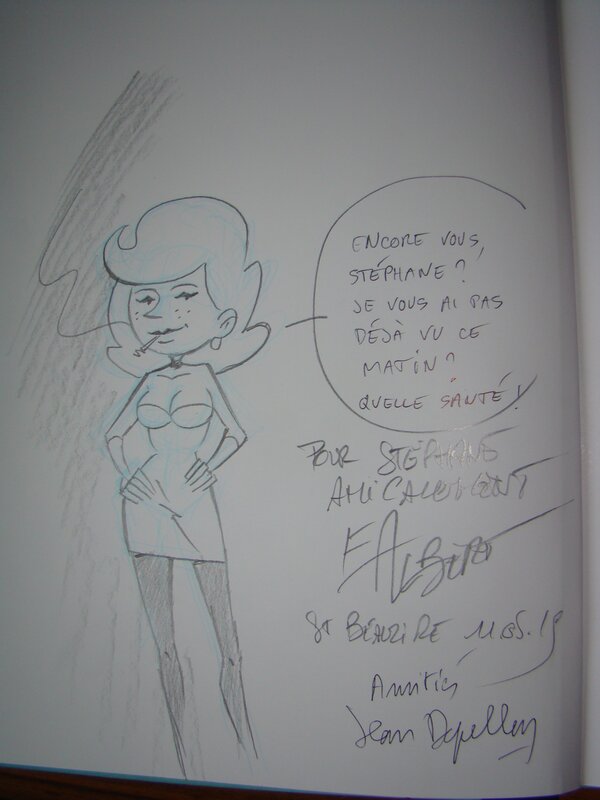 ENCORE VOUS,
STÉPHANE ?
JE VOUS AI PAS
DÉJÀ VU CE
MATIN ?
QUELLE SANTÉ !
POUR STÉPHANE
AMICALEMENT
E ALBERT
ST BEAUZIRE 11.05.19
Amitiés
Jean Depelley